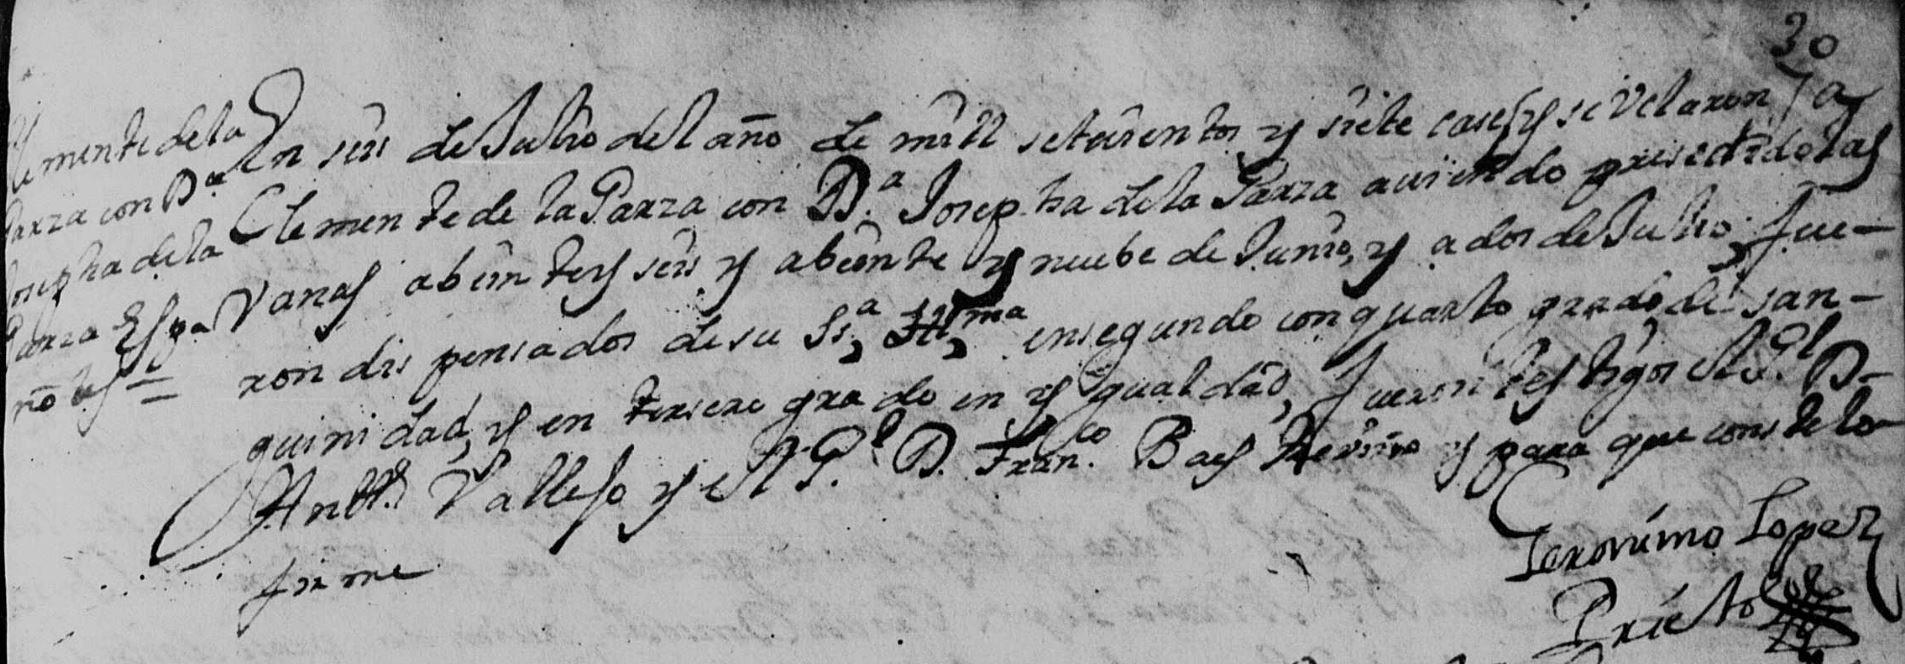 30
Clemente de la
Garza con Da
Josepha de la
Garza Espa
ñoles =
En seis de Julio del año de mill setesientos y siete case y se velaron
Clemente de la Garza con Da. Josepha de la Garza auiendo presedido las
Vanas a beinte y seis y a beinte y nuebe de Junio, y a dos de Julio, fue-
ron dispensados de su Ssa, Illma en segundo con quarto grado de san-
guinidad, y en tersero grado en ygualdad, fueron testigos el Gl. D.
Antto. Vallejo y el Gl. D. Franco. Baes Treviño y para que conste lo
firme
Geronimo Lopez
Prieto